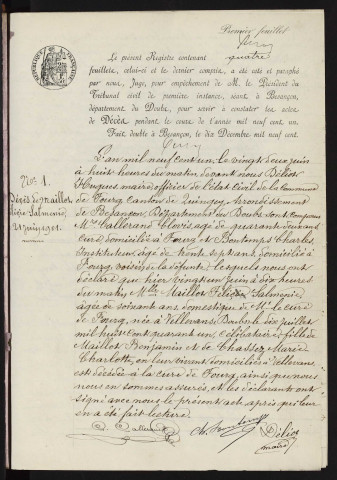 Premier feuillet
Le présent Registre contenant quatre
feuillets, celui-ci et le dernier compris, a été coté et paraphé
par nous, Juge, pour empêchement de M. le Président du
Tribunal civil de première instance, séant à Besançon,
département du Doubs, pour servir à constater les actes
de Décès pendant le cours de l'année mil neuf cent un.
Fait double à Besançon, le dix Décembre mil neuf cent.
RÉPUBLIQUE FRANÇAISE
N° 1.
Décès de Maillot
Salménie
21 juin 1901.
L'an mil neuf cent un le vingt deux juin
à huit heures du matin devant nous Déliot
Hugues maire officier de l'état Civil de la Commune
de Fourg Canton de Quingey Arrondissement
de Besançon Département du Doubs sont comparus
Mr. Callerand Clovis, âgé de quarante deux ans
curé domicilié à Fourg et Bontemps Charles
Instituteur âgé de trente sept ans, domicilié à
Fourg, voisins de la défunte, lesquels nous ont
déclaré que hier vingt un juin à dix heures
du matin Maillot Salménie
âgée de soixante ans domestique de Mr le curé
de Fourg, née à Vellevans Doubs le dix juillet
mil huit cent quarante un Célibataire fille de
Maillot Benjamin et de Marie
Charlotte, en leur vivant domiciliés à Vellevans,
est décédée à la cure de Fourg, ainsi que nous
nous en sommes assurés, et les déclarants ont
signé avec nous le présent acte après que leur
en a été fait lecture.
C. Callerand Ch. Bontemps Déliot
maire